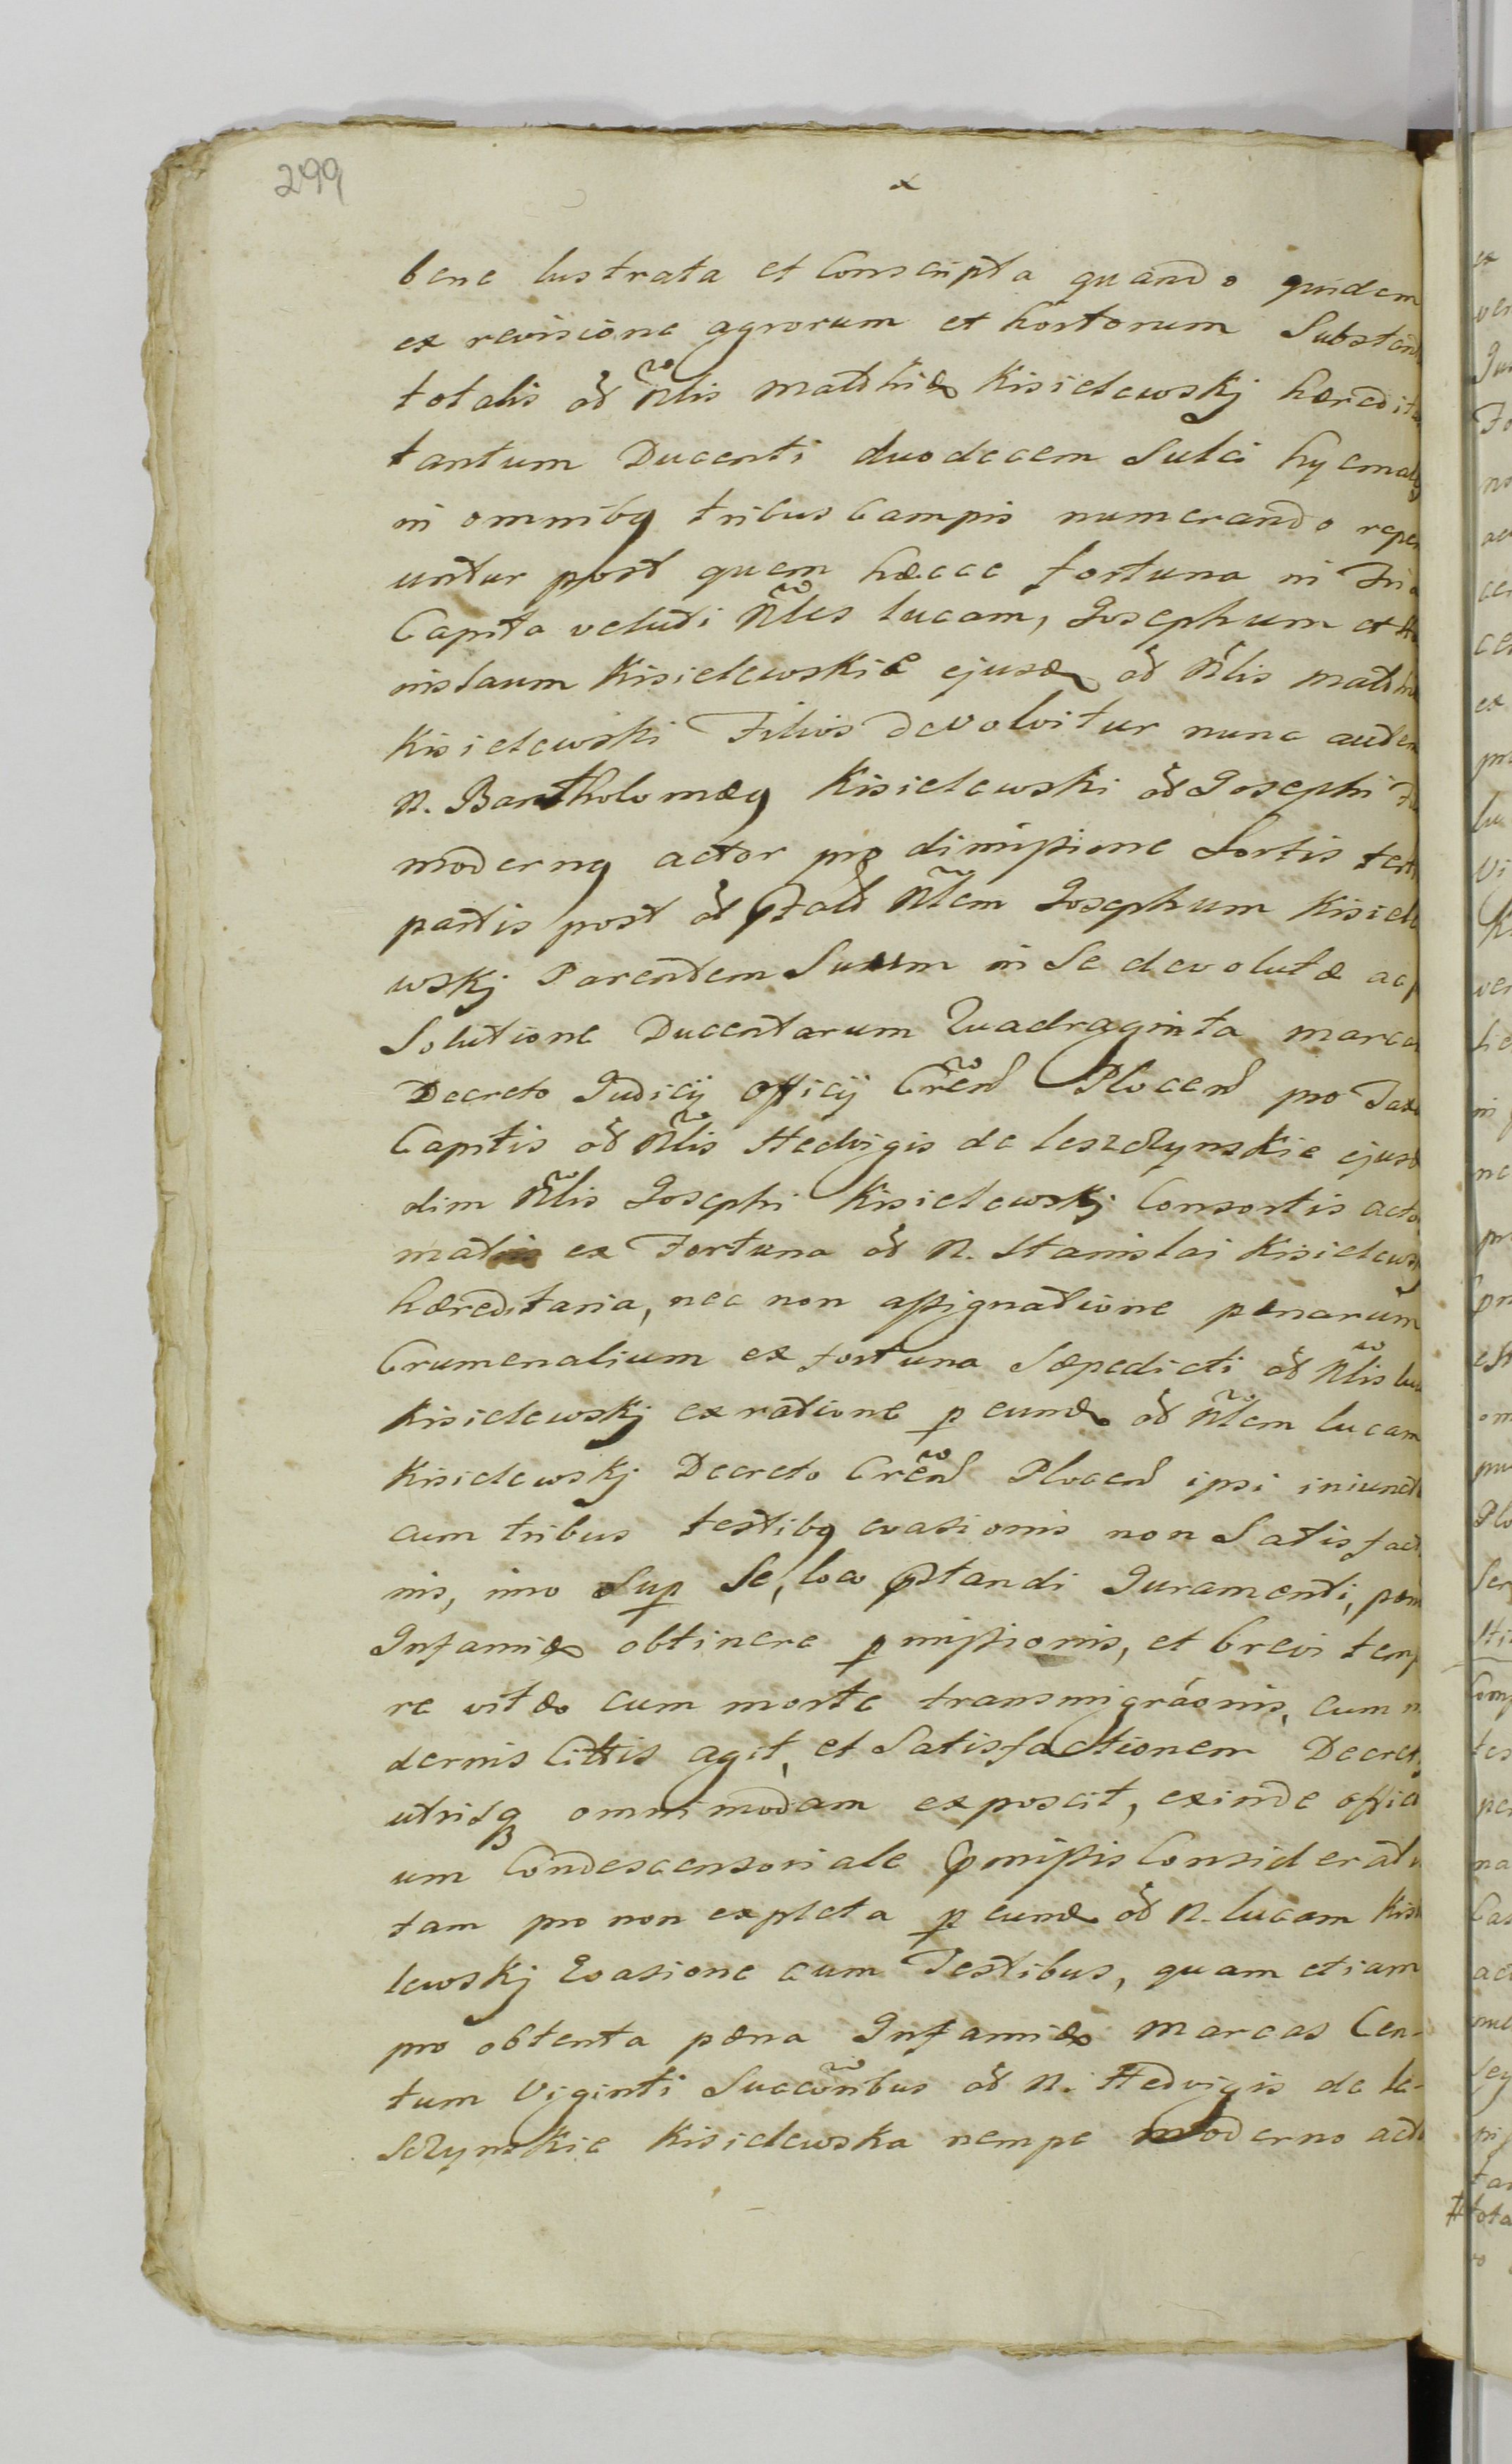 299
bene lustrata et Conscripta quando quidem
ex revisione agrorum et hortorum Substan
totalis od Nlis Matthiæ Kisielewskj hæredit
tantum Ducenti duodecem Sulci hyemal
in omnibq tribus Campis numerando repe
untur post quem hæcce fortuna in Tri
Capita veluti Nles Lucam, Josephum et
nislaum Kisielewskie ejusd od Nlis Matth
Kisielewski Filios devolvitur nunc autem
N. Bartholomæq Kisielewski od Josephi
modernq actor pro dimissione Sortis
partis post od Nlem Josephum Kisiel
wskj Parentem Suum in Se devolutæ ac
Solutione Ducentarum Quadraginta marca
Decreto Judicij officij Cren Plocen pro Taxa
Capitis od Nlis Hedvigis de Leszczynskie ejus
dim Nlis Josephi Kisielewskj Consortis acto
matris ex Fortuna od N. Stanislai Kisielews
hæreditaria, nec non assignatione pænarum
Crumenalium ex fortuna Sæpedicti od Nlis Lu
Kisielewskj ex ratione p eund od Nlem Lucam
Kisielewskj Decreto Cren Plocen ipsi iniunct
cum tribus testibq evasionis non Satisfact
nis, imo Sup Se, loco pstandi Juramenti, pæn
Infamiæ obtinere pmissionis, et brevi temp
re vitæ cum morte transmigraonis, cum
dernis Cittis agit, et Satisfactionem Decret
utrisq omnimodam exposcit, exinde offici
um Condescensoriale pmissis Considerat
tam pro non expleta p eund od N. Lucam Kisi
lewskj Evasione cum Testibus, quam etiam
pro obtenta pæna Infamiæ Marcas Cen-
tum Viginti Succoribus od N. Hedvigis de Le-
szczynskie Kisielewska nempe moderno acto